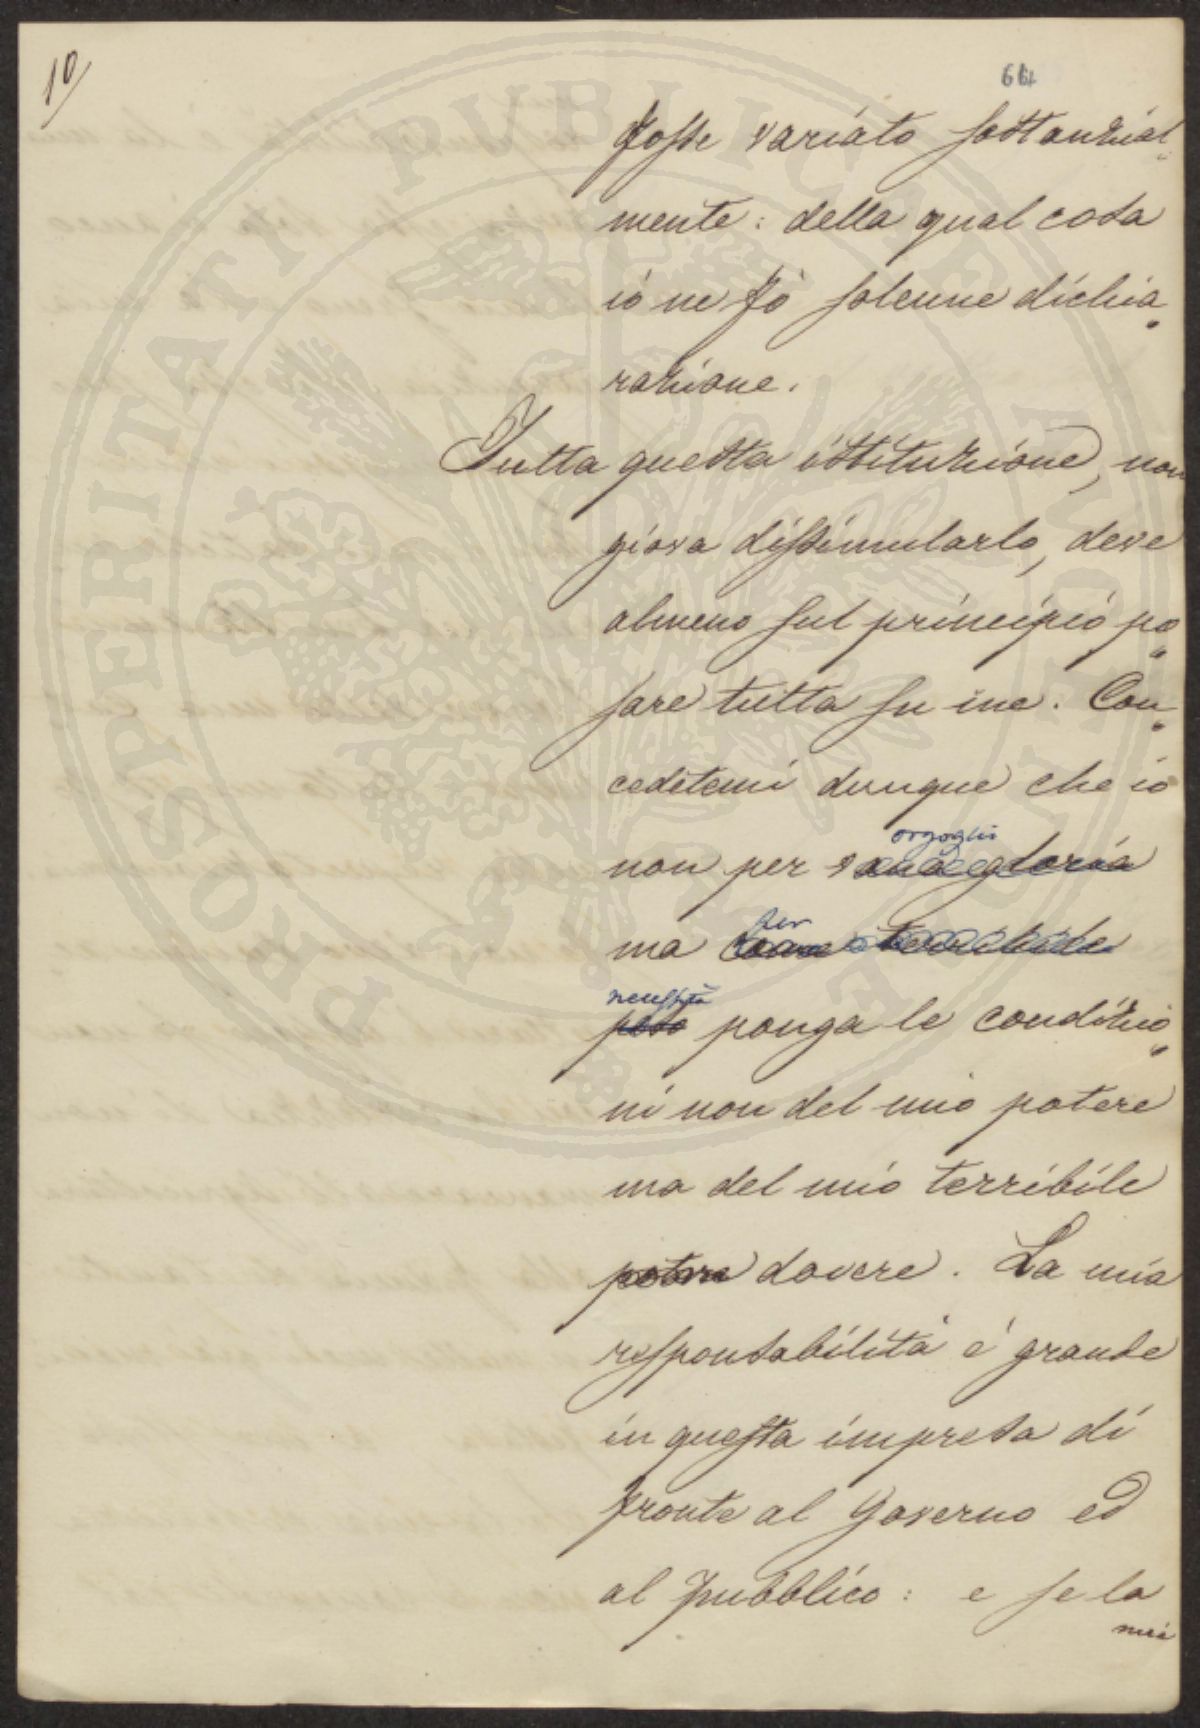 10/
664
fosse variato sostanzial-
mente: della qual cosa
io ne fò solenne dichia-
razione.
Tutta questa istituzione, non
giova dissimularlo, deve
almeno sul principio po-
sare tutta su me. Con-
cedetemi dunque che io
orgoglio
non per vana gloria
per
ma come terribile
necessità
peso ponga le condizio-
ni non del mio potere
ma del mio terribile
potere dovere. La mia
responsabilità è grande
in questa impresa di
fronte al Governo ed
al pubblico: e se la
mia
PROSPERITATI PUBLICAE